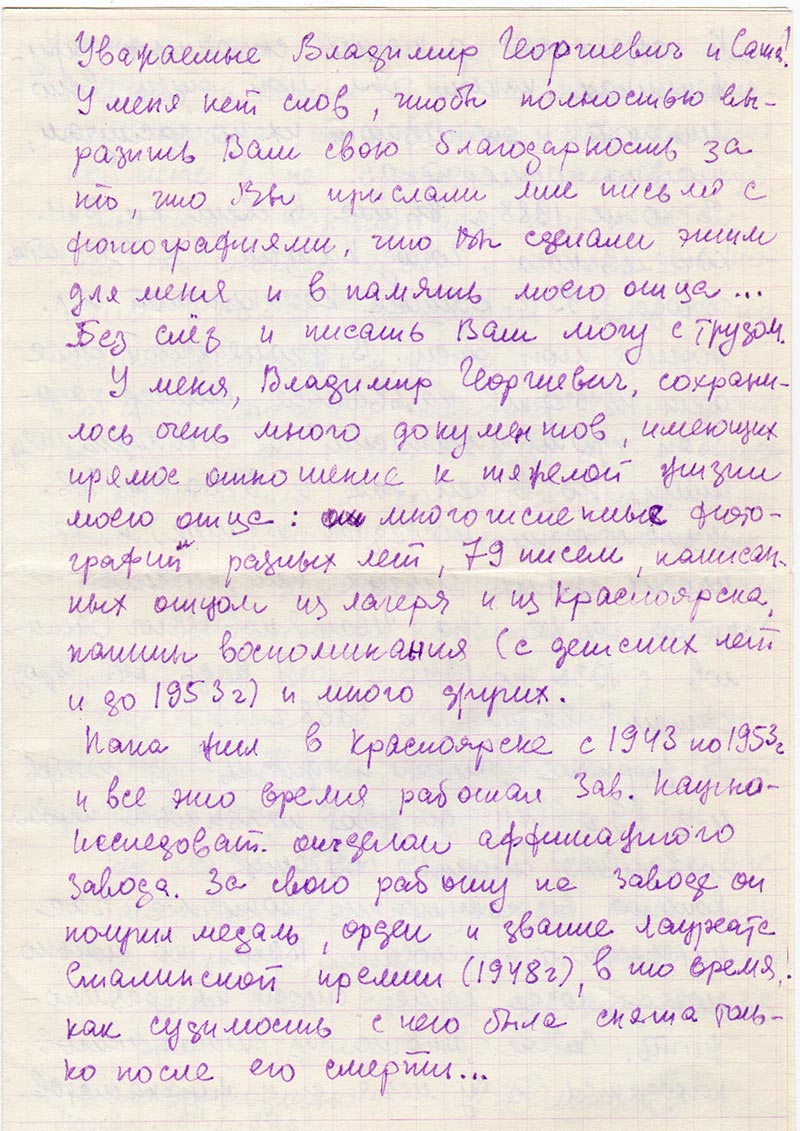 Уважаемые Владимир Георгиевич и Саша!
У меня нет слов, чтобы полностью вы-
разить Вам свою благодарность за
то, что Вы прислали мне письмо с
фотографиями, что Вы сделали этим
для меня и в память моего отца...
Без слёз и писать Вам могу с трудом.
У меня, Владимир Георгиевич, сохрани-
лось очень много документов, имеющих
прямое отношение к тяжелой жизни
моего отца: многочисленные фото-
графии разных лет, 79 писем, написан-
ных отцом из лагеря и из Красноярска,
воспоминания (с детских лет
и до 1953 г) и много других.
Папа жил в Красноярске с 1943 по 1953 г
и все это время работал Зав. Научно-
Исследоват. отделом аффинажного
завода. За свою работу на заводе он
получил медаль, орден и звание лауреата
Сталинской премии (1948 г), в то время,!
как судимость с него была снята толь-
ко после его смерти...